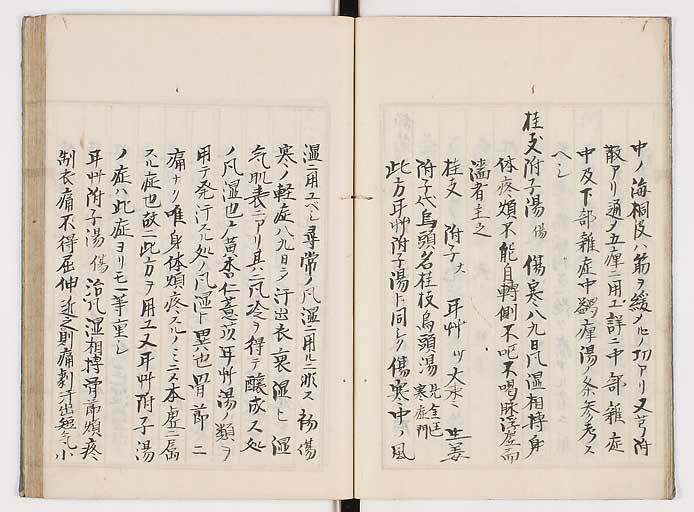 中ノ海桐皮ハ筋ヲ緩メルノ功アリ又芎附
散アリ通メ五痺ニ用ユ詳ニ中部雜症
中及下部雜症中鶴痺湯ノ条参考ス
ヘシ
桂支附子湯 傷 傷寒八九日風湿相搏身
体疼煩不能自轉側不呕不喝脉浮虚而
濇者主之
桂支 附子大 耳艸 ツ 大棗ミ 生姜
附子代烏頭名桂枝烏頭湯 寒症門
此方耳艸附子湯ト同シク傷寒中ノ風
湿ニ用ユヘシ尋常ノ風湿ニ用ルニ非ス 傷
寒ノ軽症八九日ニ汗出衣裏湿ヒ湿
気肌表ニアリ其ハ風冷ヲ得テ醸成ス処
ノ風湿也 黄杏仁薏苡耳艸湯ノ類ヲ
用テ発汗スル処ノ風湿ト異也骨節ニ
痛ナク唯身体煩疼スルノミニメ本虚ニ属
スル症也故ニ此方ヲ用ユ又耳艸附子湯
ノ症ハ此症ヨリモ一等重シ
耳艸附子湯 傷 治風湿相搏骨節煩疼
制衣痛不得屈伸近之則痛劇汗出短気小